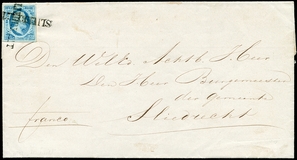 Den Wel Ed. Achtb. Heer
Den Heer Burgemeester
der gemeente
Sliedrecht
franco